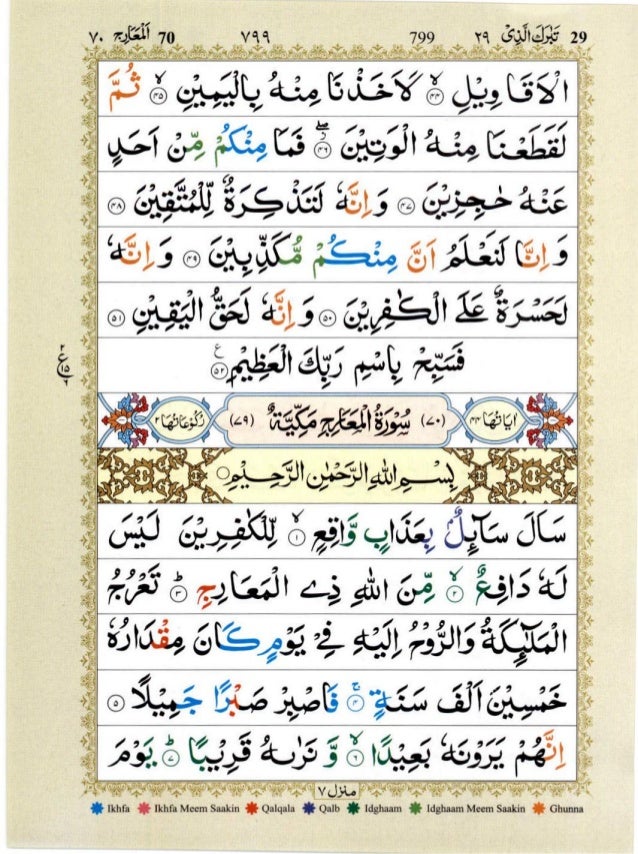 ٧٠ اَلْمَعَارِج 70 ٧٩٩ 799 تَبٰرَكَ الَّذِىْ ٢٩ 29
الْاَقَاوِيْلِ ۙ‏﴿٤٤﴾ لَاَخَذْنَا مِنْهُ بِالْيَمِيْنِ ۙ‏﴿٤٥﴾ ثُمَّ
لَقَطَعْنَا مِنْهُ الْوَتِيْنَ ‏﴿٤٦﴾ فَمَا مِنْكُمْ مِّنْ اَحَدٍ
عَنْهُ حٰجِزِيْنَ ‏﴿٤٧﴾ وَاِنَّهٗ لَتَذْكِرَةٌ لِّلْمُتَّقِيْنَ ‏﴿٤٨﴾
وَاِنَّا لَنَعْلَمُ اَنَّ مِنْكُمْ مُّكَذِّبِيْنَ ‏﴿٤٩﴾ وَاِنَّهٗ
لَحَسْرَةٌ عَلَى الْكٰفِرِيْنَ ‏﴿٥٠﴾ وَاِنَّهٗ لَحَقُّ الْيَقِيْنِ ‏﴿٥١﴾
فَسَبِّحْ بِاسْمِ رَبِّكَ الْعَظِيْمِ ‏﴿٥٢﴾
٢ ع ١٥ ٦
اٰيَاتُهَا ٤٤ (٧٠) سُوْرَةُ الْمَعَارِجِ مَكِّيَّةٌ (٧٩) رُكُوْعَاتُهَا ٢
بِسْمِ اللهِ الرَّحْمٰنِ الرَّحِيْمِ
سَاَلَ سَآئِلٌۢ بِعَذَابٍ وَّاقِعٍ ۙ‏﴿١﴾ لِّلْكٰفِرِيْنَ لَيْسَ
لَهٗ دَافِعٌ ۙ‏﴿٢﴾ مِّنَ اللهِ ذِى الْمَعَارِجِ ؕ‏﴿٣﴾ تَعْرُجُ
الْمَلٰٓئِكَةُ وَالرُّوْحُ اِلَيْهِ فِىْ يَوْمٍ كَانَ مِقْدَارُهٗ
خَمْسِيْنَ اَلْفَ سَنَةٍ ۚ‏﴿٤﴾ فَاصْبِرْ صَبْرًا جَمِيْلًا ‏﴿٥﴾
اِنَّهُمْ يَرَوْنَهٗ بَعِيْدًا ۙ‏﴿٦﴾ وَّنَرٰىهُ قَرِيْبًا ؕ‏﴿٧﴾ يَوْمَ
منزل ٧
Ikhfa Ikhfa Meem Saakin Qalqala Qalb Idghaam Idghaam Meem Saakin Ghunna